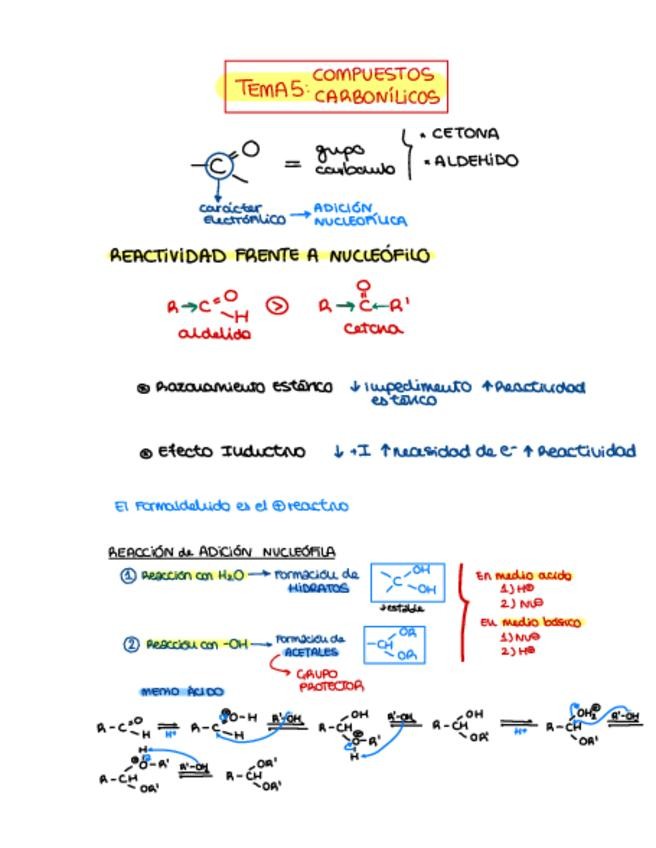 TEMA 5: COMPUESTOS CARBONÍLICOS
C=O = grupo carbonilo
• CETONA
• ALDEHIDO
carácter ELECTROFÍLICO → ADICIÓN NUCLEOFÍLICA
REACTIVIDAD FRENTE A NUCLEÓFILO
R→C=O H > R→C←R' O
aldehido cetona
Razonamiento Estérico ↓ impedimento estérico ↑ Reactividad
Efecto Inductivo ↓ +I ↑ necesidad de e⁻ ↑ Reactividad
El Formaldehido es el ⊕ reactivo
REACCIÓN de ADICIÓN NUCLEÓFILA
① Reacción con H₂O → Formación de HIDRATOS
C OH OH
↓estable
② Reacción con -OH → Formación de ACETALES
-CH OR OR
GRUPO PROTECTOR
En medio acido
1) H⊕
2) Nu⊖
En medio básico
1) Nu⊖
2) H⊕
MEDIO ÁCIDO
R-C=O H ⇌ H⁺ R-C ⊕O-H H R'-OH R-CH OH ⊕O-R' H R'-OH R-CH OH OR' ⇌ H⁺ R-CH OH₂⊕ OR' R'-OH
R-CH H ⊕O-R' OR' R'-OH R-CH OR' OR'